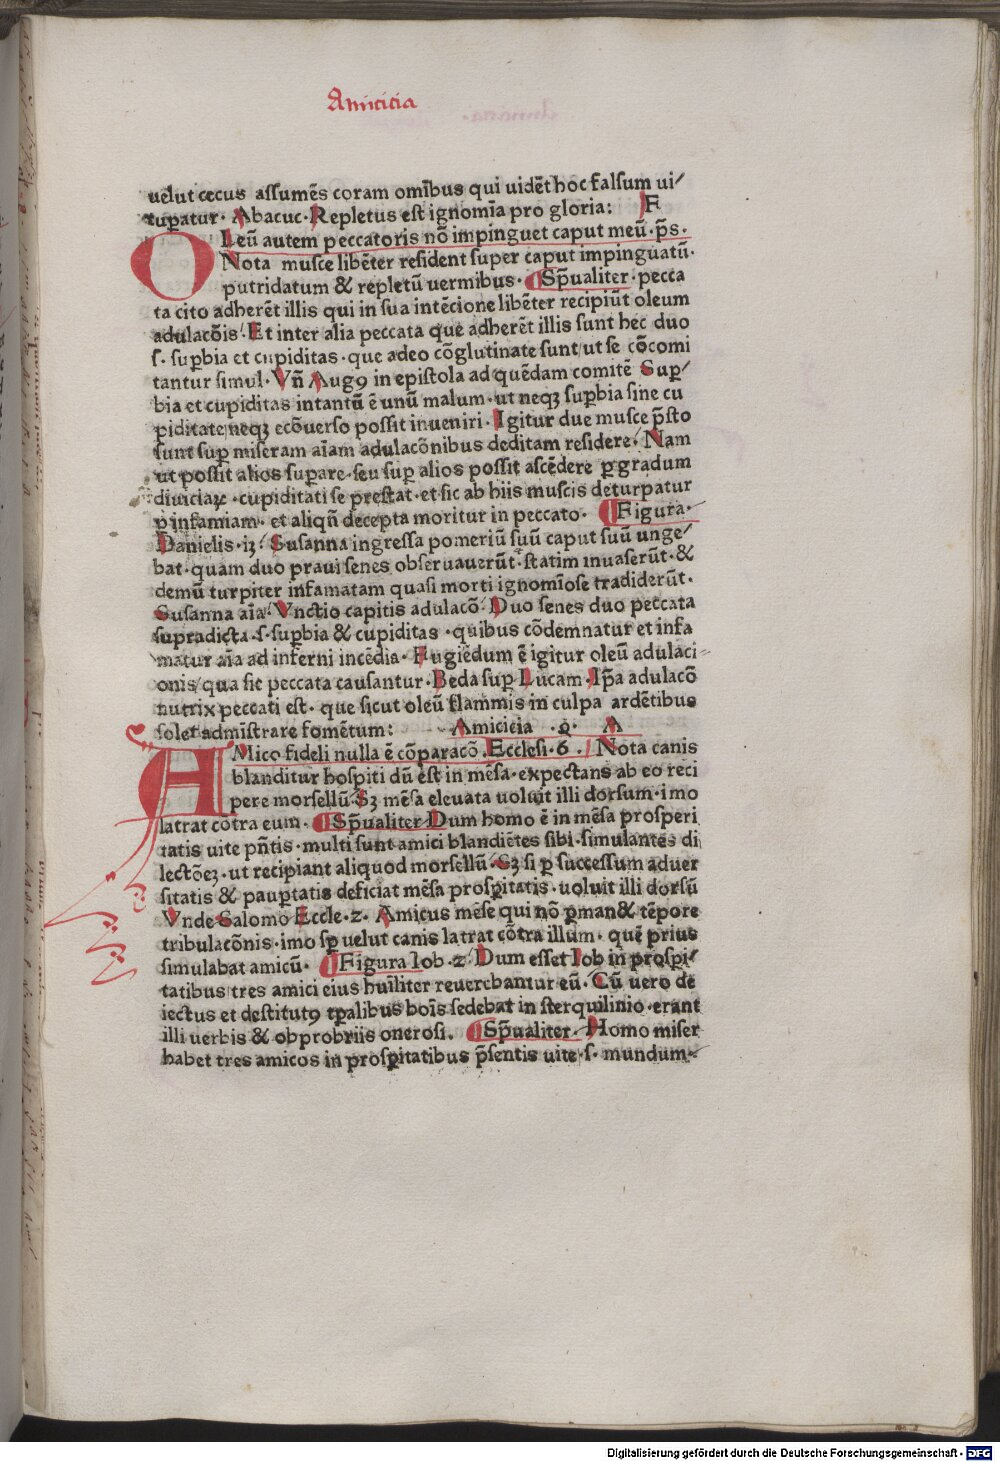 Amicicia
uelut cecus assumēs coram omībus qui uidēt hoc falsum ui/
tup̄atur· Abacuc·Repletus est ignomīa pro gloria: F
OLeū autem peccatoris nō impinguet caput meū· p̄s·
Nota musce libēter resident super caput impinguatū·
putridatum & repletū uermibus· ¶Sp̄ualiter· pecca
ta cito adherēt illis qui in sua intēcione libēter recipiūt oleum
adulacōis· Et inter alia peccata que adherēt illis sunt hec duo
s· sup̄bia et cupiditas·que adeo cōglutinate sunt ut se cōcomi
tantur simul· Vn̄ Augꝰ in epistola ad quēdam comitē Sup̄/
bia et cupiditas intantū ē unū malum·ut neqꝫ sup̄bia sine cu
piditate neqꝫ ecōuerso possit inueniri· Igitur due musce p̄sto
sunt sup̄ miseram aīam adulacōnibus deditam residere· Nam
ut possit alios sup̄are·seu sup̄ alios possit ascēdere ꝑ gradum
diuiciaꝝ·cupiditati se prestat·et sic ab hiis muscis deturpatur
ꝑ infamiam· et aliqn̄ decepta moritur in peccato· ¶Figura·
Danielis·iꝫ· Susanna ingressa pomeriū suū caput suū unge/
bat·quam duo praui senes obseruauerūt·statim inuaserūt·&
demū turpiter infamatam quasi morti ignomīose tradiderūt·
Susanna aīa/ Vnctio capitis adulacō· Duo senes duo peccata
supradicta·s·sup̄bia & cupiditas·quibus cōdemnatur et infa
matur aīa ad inferni incēdia· Fugiēdum ē igitur oleū adulaci/
onis/qua sic peccata causantur·Beda sup̄ Lucam·Ip̄a adulacō
nutrix peccati est·que sicut oleū flammis in culpa ardētibus
solet admīstrare fomētum: Amicicia ·8· A
AMico fideli nulla ē cōparacō·Ecclesi·6·/ Nota canis
blanditur hospiti dū est in mēsa·expectans ab eo reci
pere morsellū·Sꝫ mēsa eleuata uoluit illi dorsum·imo
latrat cōtra eum· ¶Sp̄ualiter·Dum homo ē in mēsa prosperi
tatis uite pn̄tis·multi sunt amici blandiētes sibi·simulantes di
lectōeꝫ·ut recipiant aliquod morsellū·Sꝫ si ꝑ successum aduer
sitatis & paup̄tatis deficiat mēsa prosp̄itatis·uoluit illi dorsū
Vnde Salomo Eccle·2· Amicus mēse qui nō ꝑman& tēpore
tribulacōnis·imo sp̄ uelut canis latrat cōtra illum· quē prius
simulabat amicū· ¶Figura Iob·2· Dum esset Iob in prosp̄i/
tatibus tres amici eius huīliter reuerebantur eū· Cū uero de
iectus et destitutꝰ tp̄alibus boīs sedebat in sterquilinio·erant
illi uerbis & obprobriis onerosi. ¶Sp̄ualiter· Homo miser
habet tres amicos in prosp̄itatibus p̄sentis uite·s· mundum·/
Digitalisierung gefördert durch die Deutsche Forschungsgemeinschaft - DFG